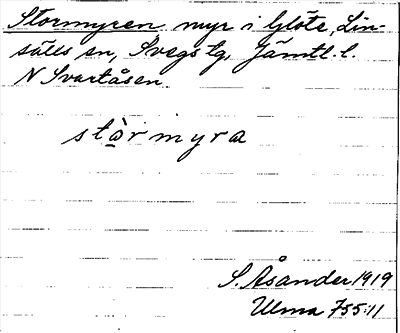 Stormyren myr i Glöte, Lin-
sälls sn, Svegs tg, Jämtl. l.
N Svartåsen.
stàrmyra
S. Åsander 1919
Ulma 755:11